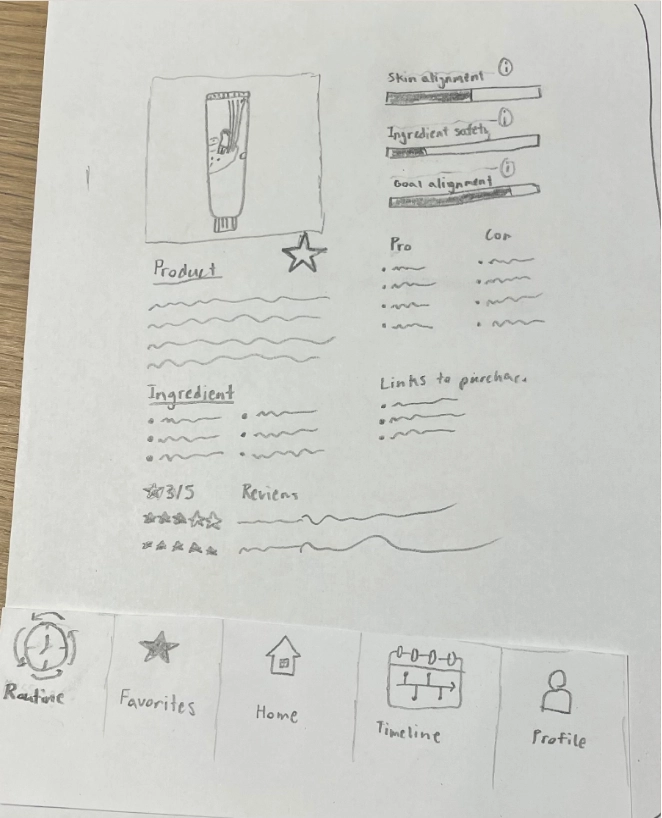 Skin alignment
Ingredient safety
Goal alignment
Pro
Con
Product
Ingredient
Links to purchac.
3/5
Reviews
Routine
Favorites
Home
Timeline
Profile